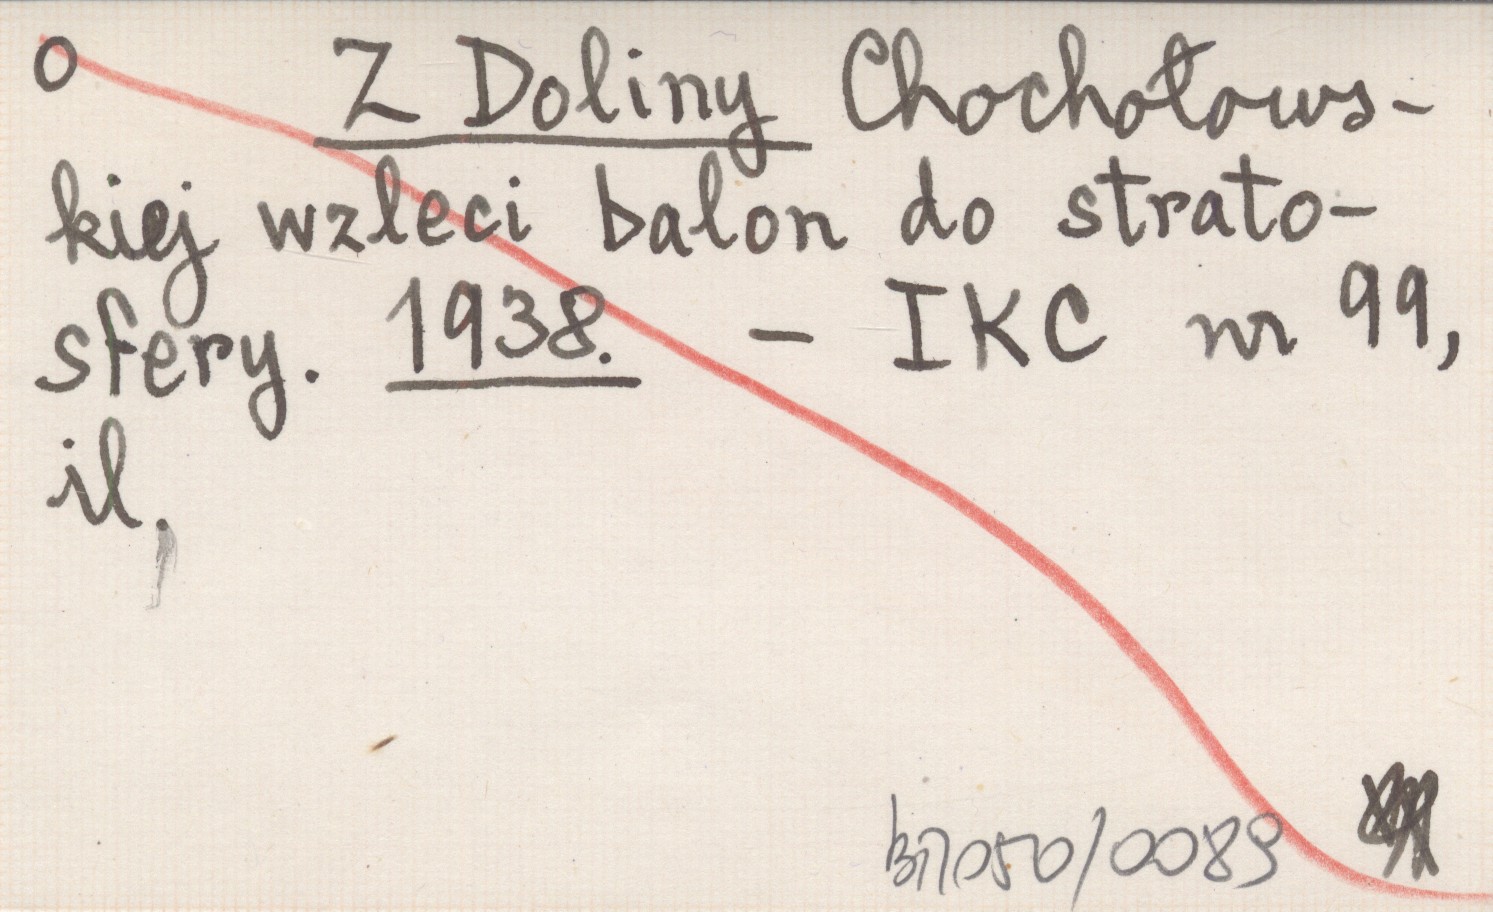 O Z Doliny Chochołows-
kiej wzleci balon do strato-
sfery. 1938. - IKC nr 99,
il,